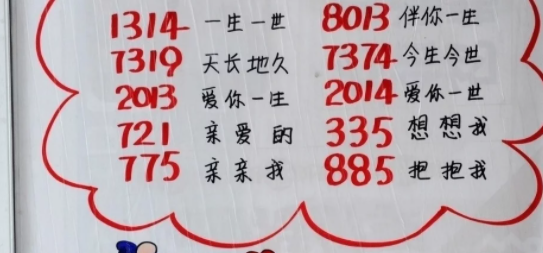 1314 一生一世 8013 伴你一生
7319 天长地久 7374 今生今世
2013 爱你一生 2014 爱你一世
721 亲爱的 335 想想我
775 亲亲我 885 抱抱我